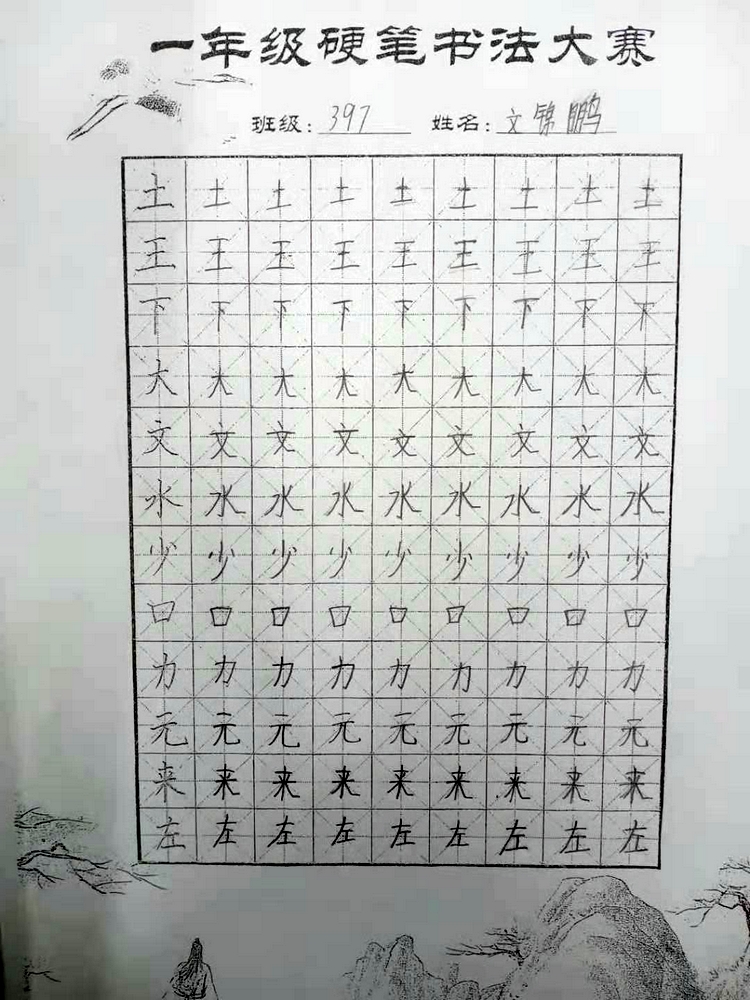 一年级硬笔书法大赛
班级：397 姓名：文锦鹏
土土土土土土土土土
王王王王王王王王王
下下下下下下下下下
大大大大大大大大大
文文文文文文文文文
水水水水水水水水水
少少少少少少少少少
口口口口口口口口口
力力力力力力力力力
元元元元元元元元元
来来来来来来来来来
左左左左左左左左左